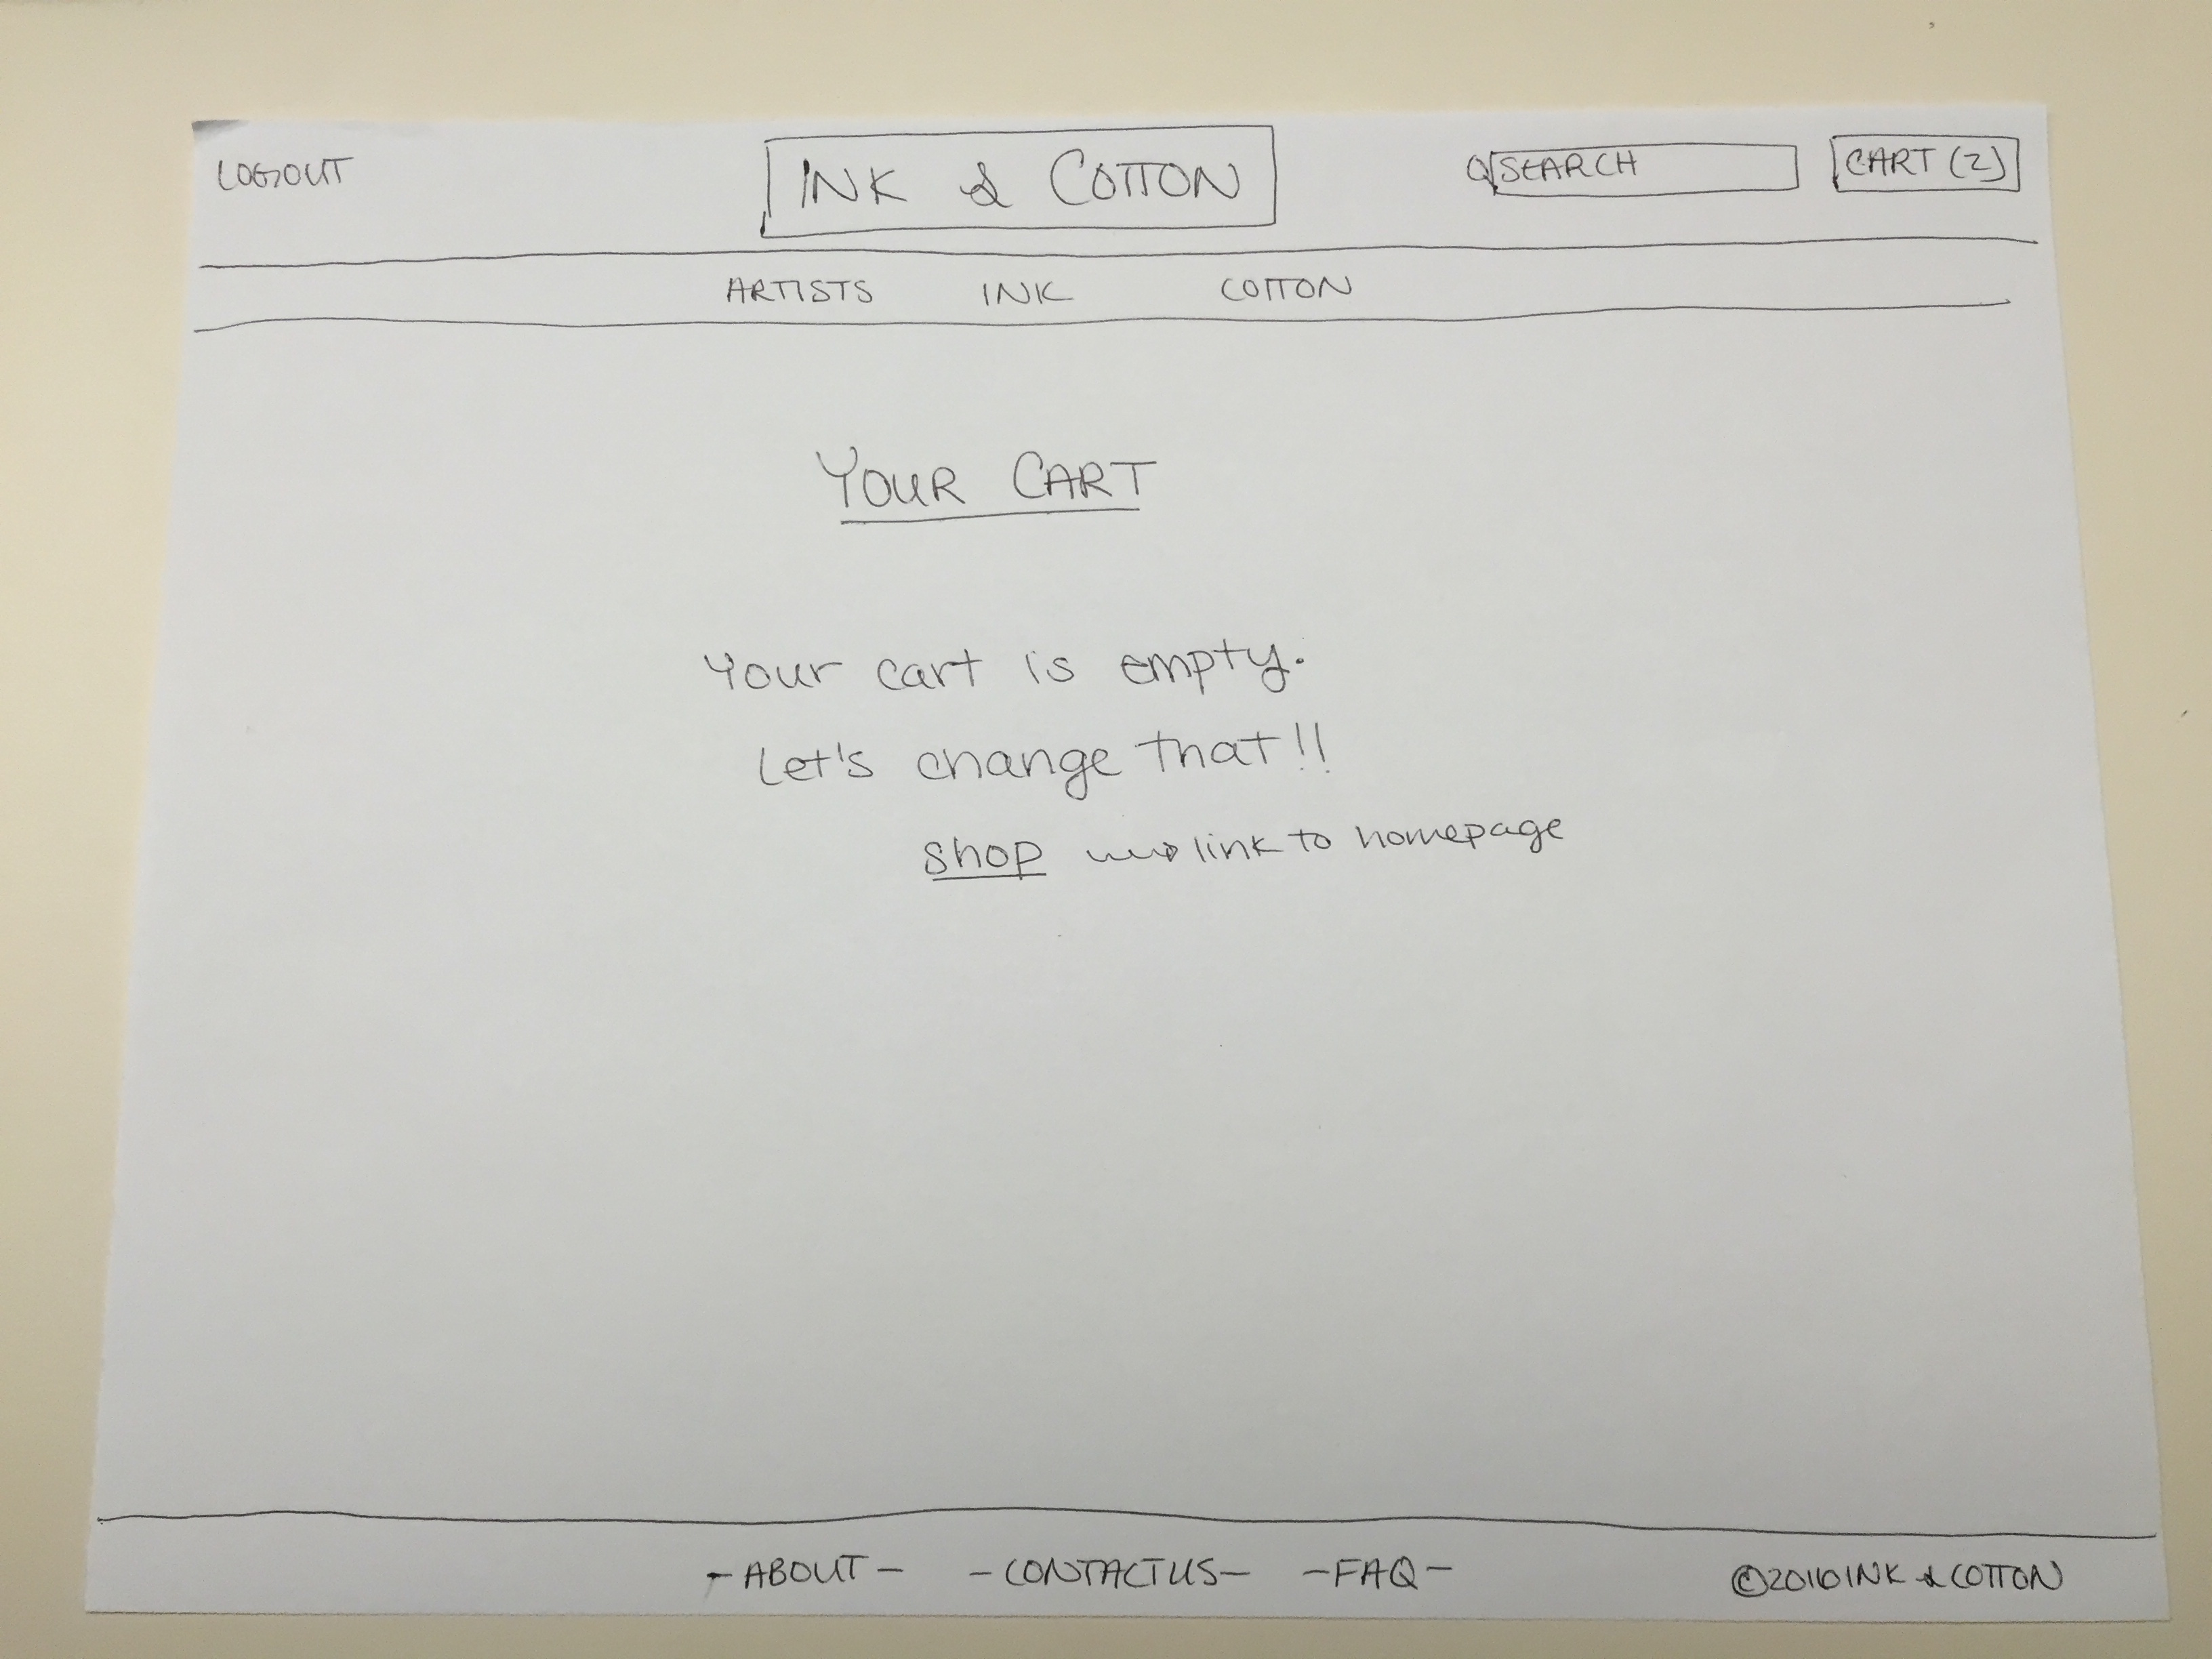 LOGOUT INK & COTTON SEARCH CART (2)
ARTISTS INK COTTON
YOUR CART
Your cart is empty.
Let's change that!!
shop link to homepage
- ABOUT - - CONTACT US - - FAQ - © 2016 INK & COTTON